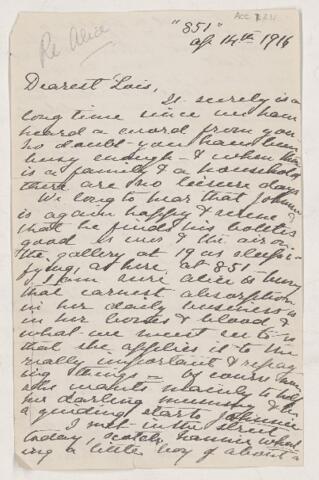 Re Alice
"851"
ap 14th 1916
Dearest Lois,
It surely is a
long time since we have
heard a word from you
no doubt you have been
busy enough & when there
is a family & a household
there are no leisure days
We long to hear that
is again happy & serene &
that he finds his
good as ever & the air on
the gallery at 19 as
fying, as here, at 851
I am sure Alice is
that earnest absorption
in her daily business is
in her & blood &
what we must see to is
that she applies it to the
really important & repay
ing things — of course
she wants mainly to help
her darling & be
a guiding star to
I met in the street
today,
ing a little boy of about a